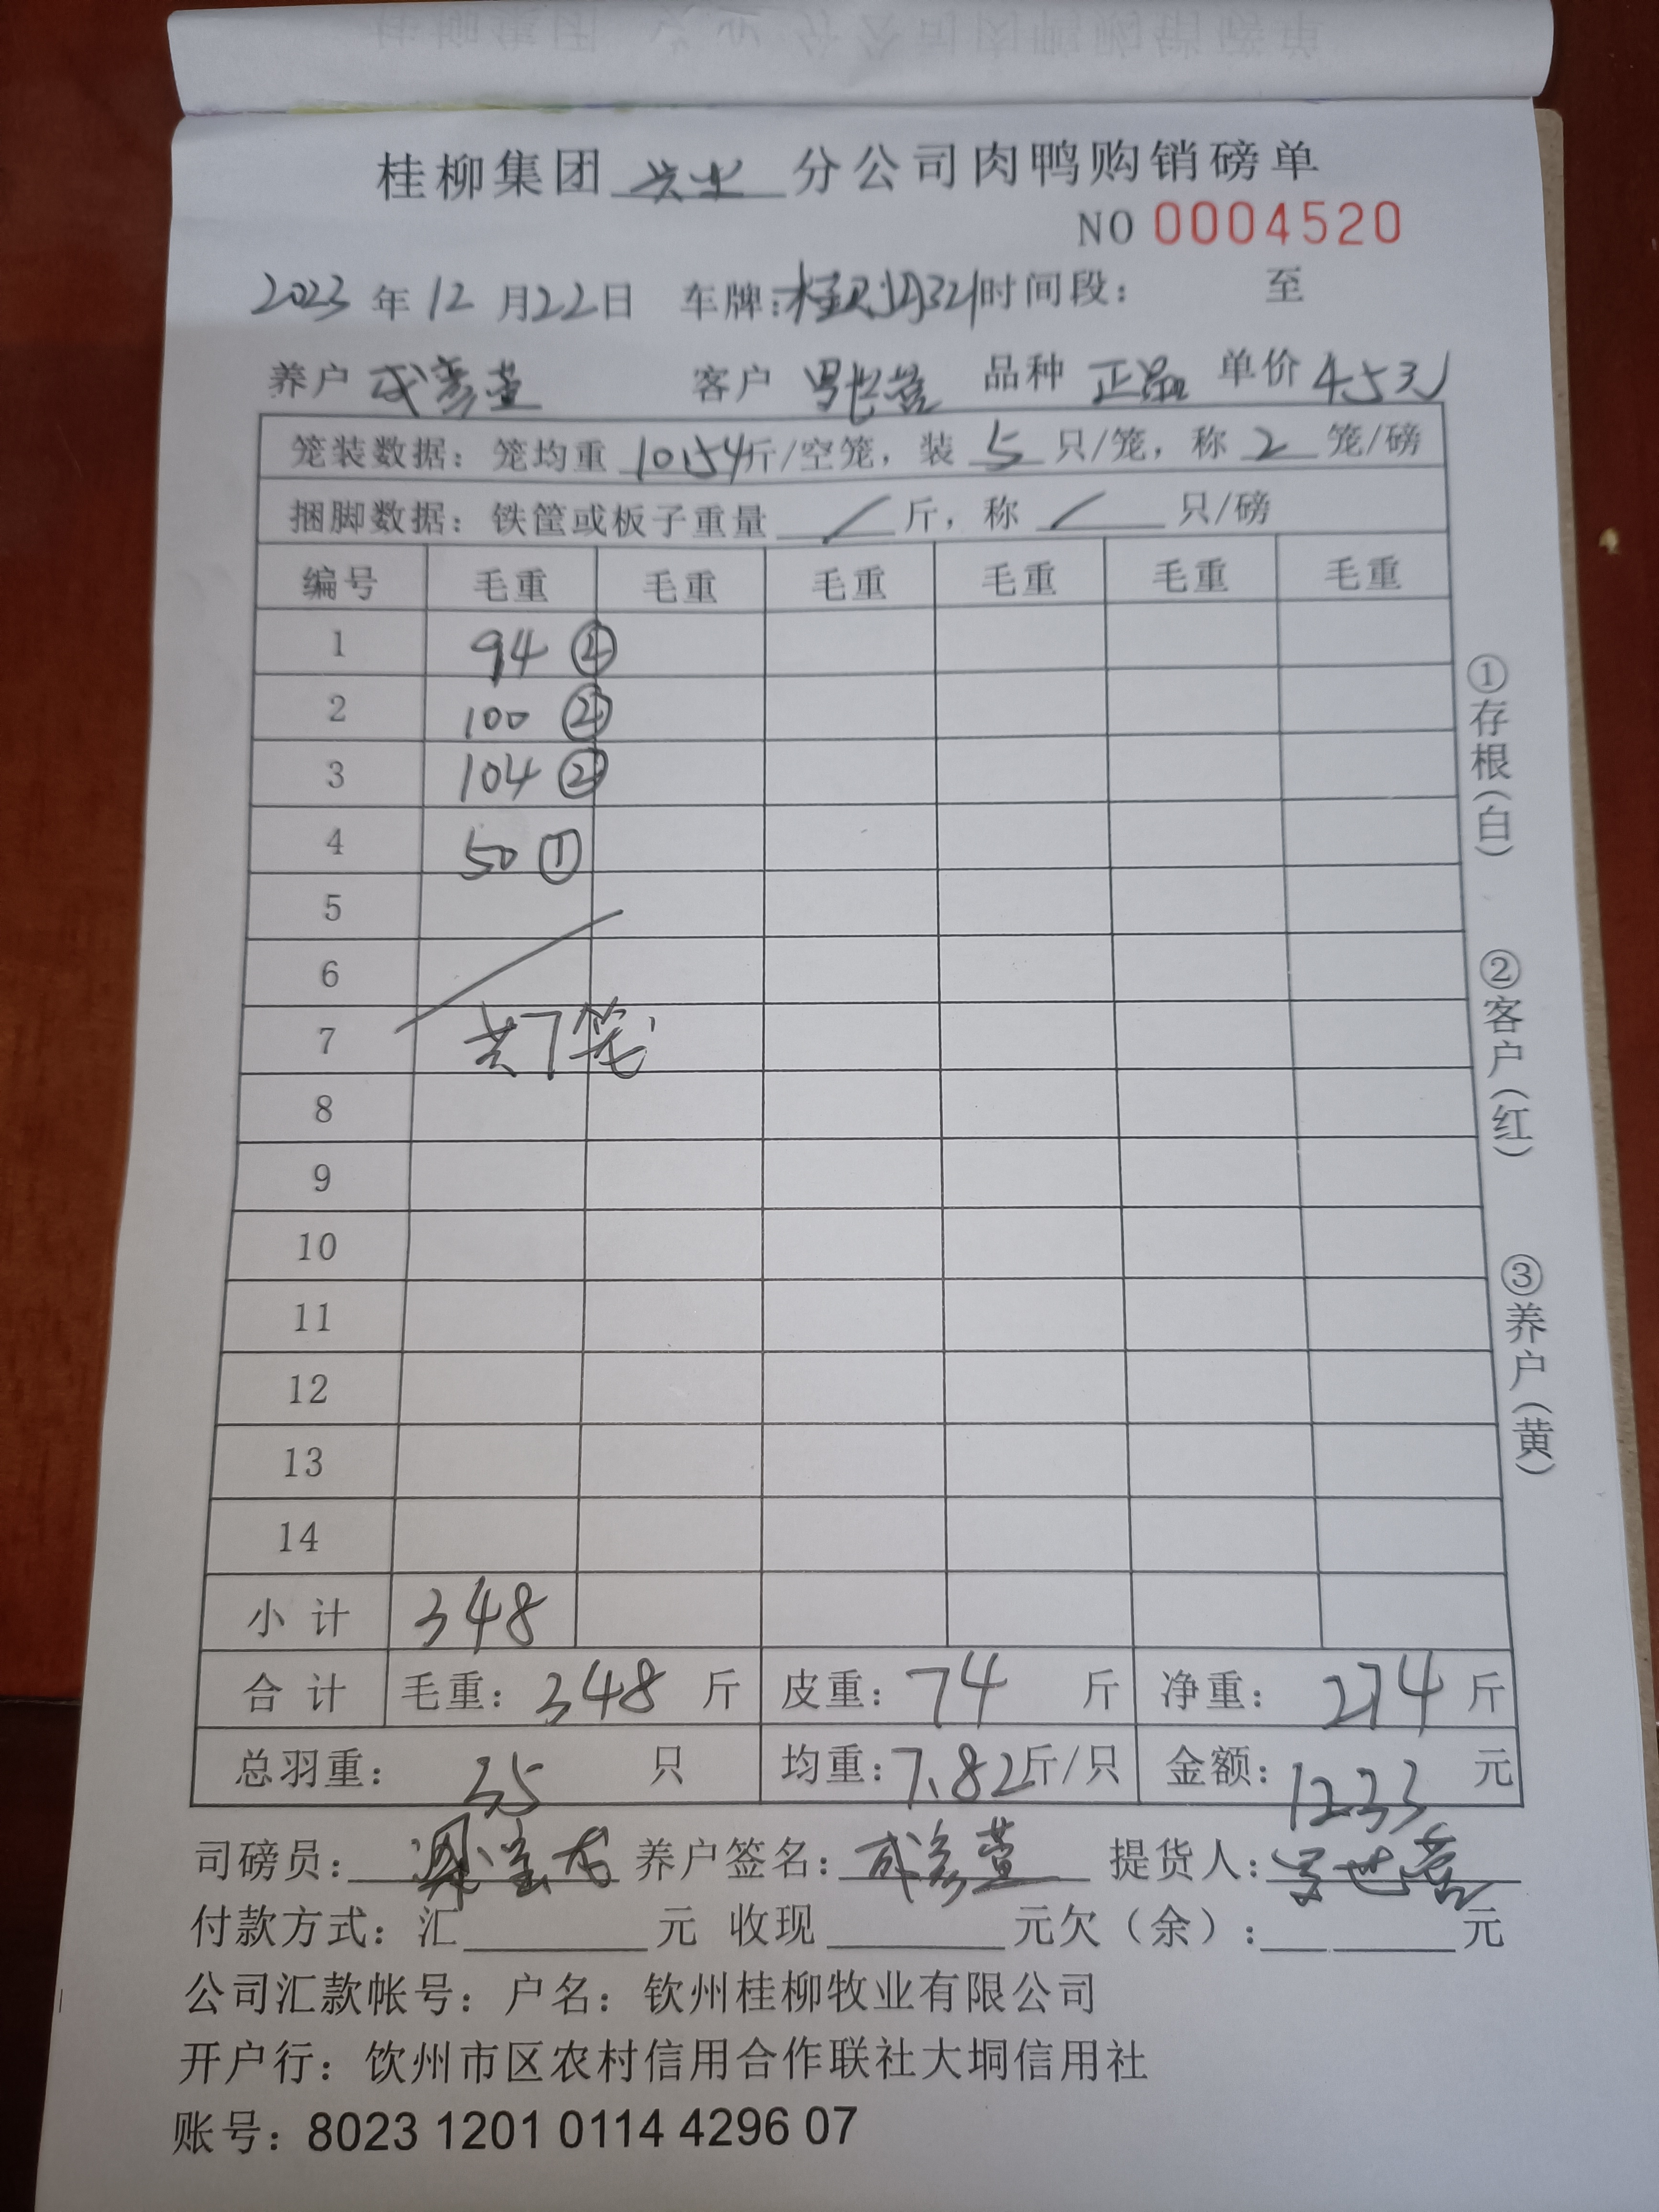 桂柳集团 兴业 分公司肉鸭购销磅单
NO 0004520
2023 年 12 月 22 日 车牌: 时间段: 至
养户 成彦萱 客户 品种 正品 单价 4.5元
笼装数据: 笼均重 10.54 斤/空笼, 装 5 只/笼, 称 2 笼/磅
捆脚数据: 铁筐或板子重量 / 斤, 称 / 只/磅
编号 毛重 毛重 毛重 毛重 毛重 毛重
1 94 ②
2 100 ②
3 104 ②
4 50 ①
5
6
7 共7笼
8
9
10
11
12
13
14
小计 348
合计 毛重: 348 斤 皮重: 74 斤 净重: 274 斤
总羽重: 35 只 均重: 7.82 斤/只 金额: 1233 元
司磅员: 养户签名: 成彦萱 提货人:
付款方式: 汇 元 收现 元欠（余）: 元
公司汇款帐号: 户名: 钦州桂柳牧业有限公司
开户行: 饮州市区农村信用合作联社大垌信用社
账号: 8023 1201 0114 4296 07
①存根（白）
②客户（红）
③养户（黄）